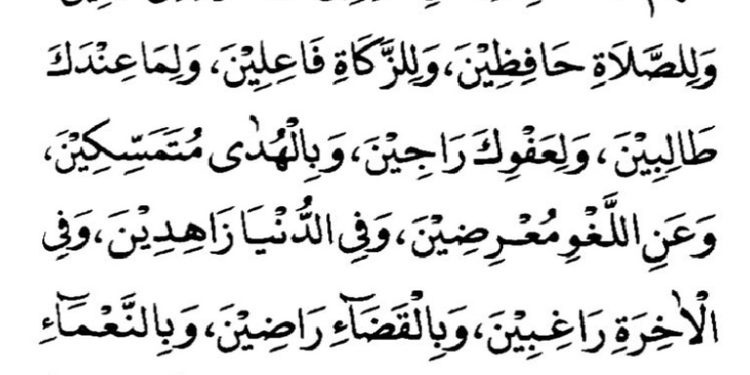 وَلِلصَّلَاةِ حَافِظِيْنَ، وَلِلزَّكَاةِ فَاعِلِيْنَ، وَلِمَا عِنْدَكَ
طَالِبِيْنَ، وَلِعَفْوِكَ رَاجِيْنَ، وَبِالْهُدٰى مُتَمَسِّكِيْنَ،
وَعَنِ اللَّغْوِ مُعْرِضِيْنَ، وَفِى الدُّنْيَا زَاهِدِيْنَ، وَفِى
الْاٰخِرَةِ رَاغِبِيْنَ، وَبِالْقَضَآءِ رَاضِيْنَ، وَبِالنَّعْمَآءِ